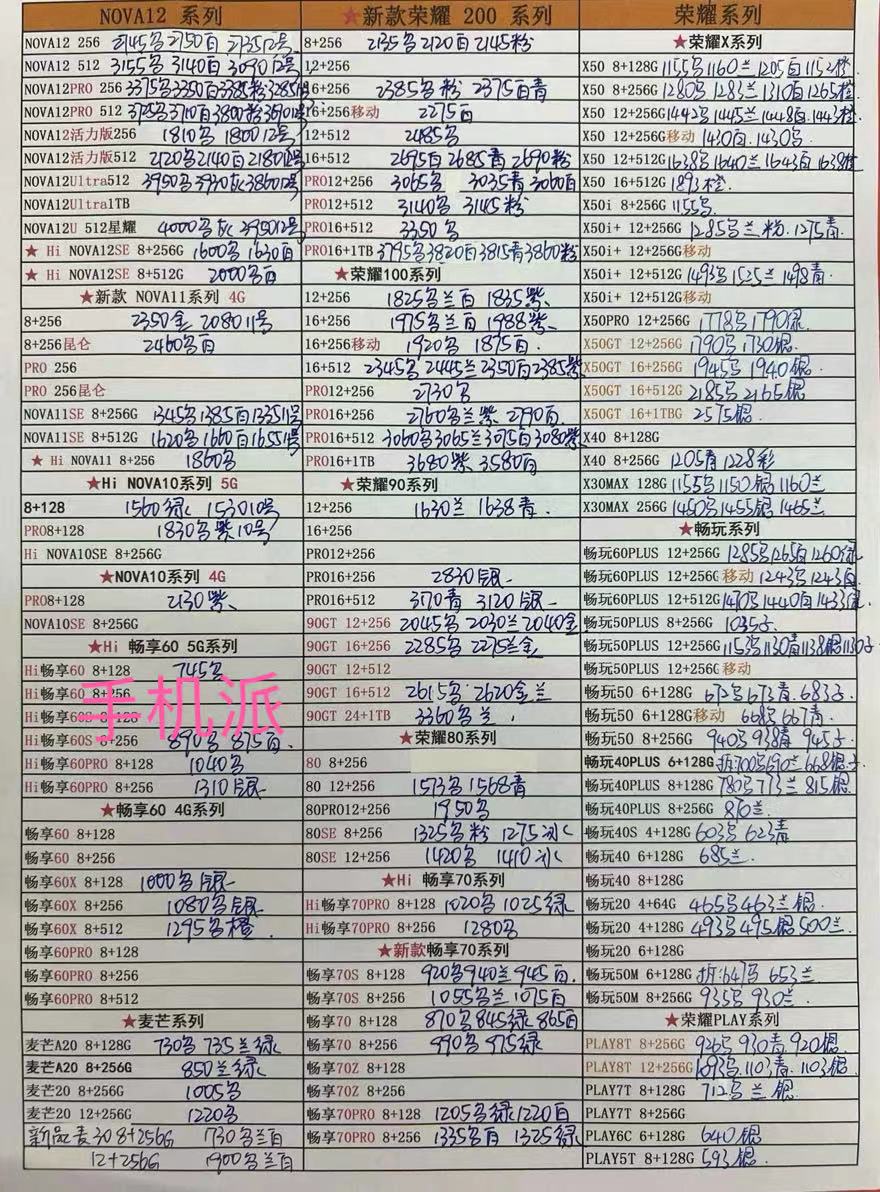 NOVA12 系列
NOVA12 256 2145名 2150白 2135 12号
NOVA12 512 3155名 3140白 3090 12号
NOVA12PRO 256 3375名 3350白 3385粉
NOVA12PRO 512 3725名 3710白 3800粉
NOVA12活力版256 1810名 1800 12号
NOVA12活力版512 2120名 2140白 2180 12号
NOVA12Ultra512 3950名 3930灰 3860 12号
NOVA12Ultra1TB
NOVA12U 512星耀 4000名灰 3950 12号
★ Hi NOVA12SE 8+256G 1600名 1630白
★ Hi NOVA12SE 8+512G 2000名白
★新款 NOVA11系列 4G
8+256 2350金 2080 11号
8+256昆仑 2460名白
PRO 256
PRO 256昆仑
NOVA11SE 8+256G 1345名 1385白 1335 11号
NOVA11SE 8+512G 1620名 1660白 1655 11号
★ Hi NOVA11 8+256 1860名
★Hi NOVA10系列 5G
8+128 1560绿 1530 10号
PRO8+128 1830名紫 10号
Hi NOVA10SE 8+256G
★NOVA10系列 4G
PRO8+128 2130紫
NOVA10SE 8+256G
★Hi 畅享60 5G系列
Hi畅享60 8+128 745名
Hi畅享60 8+256
手机派
Hi畅享60S 8+128
Hi畅享60S 8+256 890名 875白
Hi畅享60PRO 8+128 1040名
Hi畅享60PRO 8+256 1310银
★畅享60 4G系列
畅享60 8+128
畅享60 8+256
畅享60X 8+128 1000名银
畅享60X 8+256 1080名银
畅享60X 8+512 1295名橙
畅享60PRO 8+128
畅享60PRO 8+256
畅享60PRO 8+512
★麦芒系列
麦芒A20 8+128G 730名 735兰绿
麦芒A20 8+256G 850兰绿
麦芒20 8+256G 1005名
麦芒20 12+256G 1220名
新品麦30 8+256G 1730名兰白
12+256G 1900名兰白
★新款荣耀 200 系列
8+256 2135名 2120白 2145粉
12+256
16+256 2385名粉 2375白青
16+256移动 2275白
12+512 2485名
16+512 2695白 2685青 2690粉
PRO12+256 3065名 3035青 3060白
PRO12+512 3140名 3145粉
PRO16+512 3350名
PRO16+1TB 3795名 3820白 3815青 3860粉
★荣耀100系列
12+256 1825名兰白 1835紫
16+256 1975名兰白 1988紫
16+256移动 1920名 1875白
16+512 2345名 2445兰 2350白 2385紫
PRO12+256 2730名
PRO16+256 2760名兰紫 2790白
PRO16+512 3060名 3065兰 3075白 3080紫
PRO16+1TB 3680紫 3580白
★荣耀90系列
12+256 1630兰 1638青
16+256
PRO12+256
PRO16+256 2830银
PRO16+512 3170青 3120银
90GT 12+256 2045名 2030兰 2040金
90GT 16+256 2285名 2275兰金
90GT 12+512
90GT 16+512 2615名 2620金兰
90GT 24+1TB 3360名兰
★荣耀80系列
80 8+256
80 12+256 1573名 1568青
80PRO12+256 1950名
80SE 8+256 1325名粉 1275冰
80SE 12+256 1420名 1410冰
★Hi 畅享70系列
Hi畅享70PRO 8+128 1020名 1025绿
Hi畅享70PRO 8+256 1280名
★新款畅享70系列
畅享70S 8+128 920名 940兰 945白
畅享70S 8+256 1055名兰 1075白
畅享70 8+128 870名 845绿 865白
畅享70 8+256 990名 975绿
畅享70Z 8+128
畅享70Z 8+256
畅享70PRO 8+128 1205名绿 1220白
畅享70PRO 8+256 1335名白 1325绿
荣耀系列
★荣耀X系列
X50 8+128G 1155名 1160兰 1205白 1152橙
X50 8+256G 1280名 1283兰 1310白 1265橙
X50 12+256G 1442名 1445兰 1448白 1443橙
X50 12+256G移动 1430白 1430名
X50 12+512G 1638名 1640兰 1643白 1638橙
X50 16+512G 1893橙
X50i 8+256G 1155名
X50i+ 12+256G 1285名兰粉 1275青
X50i+ 12+256G移动
X50i+ 12+512G 1493名 1525兰 1498青
X50i+ 12+512G移动
X50PRO 12+256G 1778名 1790绿
X50GT 12+256G 1790名 1730银
X50GT 16+256G 1945名 1940银
X50GT 16+512G 2185名 2165银
X50GT 16+1TBG 2575银
X40 8+128G
X40 8+256G 1205青 1228彩
X30MAX 128G 1155名 1150银 1160兰
X30MAX 256G 1450名 1455银 1465兰
★畅玩系列
畅玩60PLUS 12+256G 1285名 1265白 1260绿
畅玩60PLUS 12+256G移动 1243名 1243白
畅玩60PLUS 12+512G 1470名 1440白 1433绿
畅玩50PLUS 8+256G 1035子
畅玩50PLUS 12+256G 1153名 1130青 1138银 1130子
畅玩50PLUS 12+256G移动
畅玩50 6+128G 672名 673青 683子
畅玩50 6+128G移动 668名 667青
畅玩50 8+256G 940名 938青 945子
畅玩40PLUS 6+128G 690兰 668银
畅玩40PLUS 8+128G 780名 773兰 815银
畅玩40PLUS 8+256G 870兰
畅玩40S 4+128G 603名 623青
畅玩40 6+128G 685兰
畅玩40 8+128G
畅玩20 4+64G 465名 463兰银
畅玩20 4+128G 493名 495银 500兰
畅玩20 6+128G
畅玩50M 6+128G 拆:647名 653兰
畅玩50M 8+256G 935名 930兰
★荣耀PLAY系列
PLAY8T 8+256G 926名 930青 920银
PLAY8T 12+256G 1093名 1103青 1103银
PLAY7T 8+128G 712名兰银
PLAY7T 8+256G
PLAY6C 6+128G 640银
PLAY5T 8+128G 593银